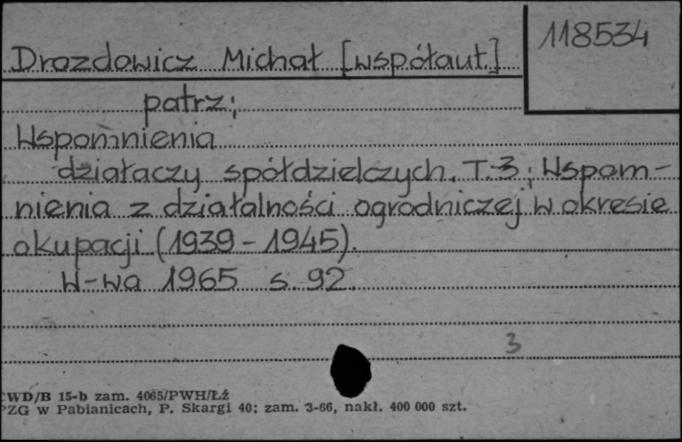 Drozdowicz Michał [współaut.]
118534
patrz:
Wspomnienia
działaczy spółdzielczych. T.3: Wspom-
nienia z działalności ogrodniczej w okresie
okupacji (1939-1945).
W-wa 1965 s. 92.
3
CWD/B 15-b zam. 4065/PWH/Łź
PZG w Pabianicach, P. Skargi 40; zam. 3-66, nakł. 400 000 szt.